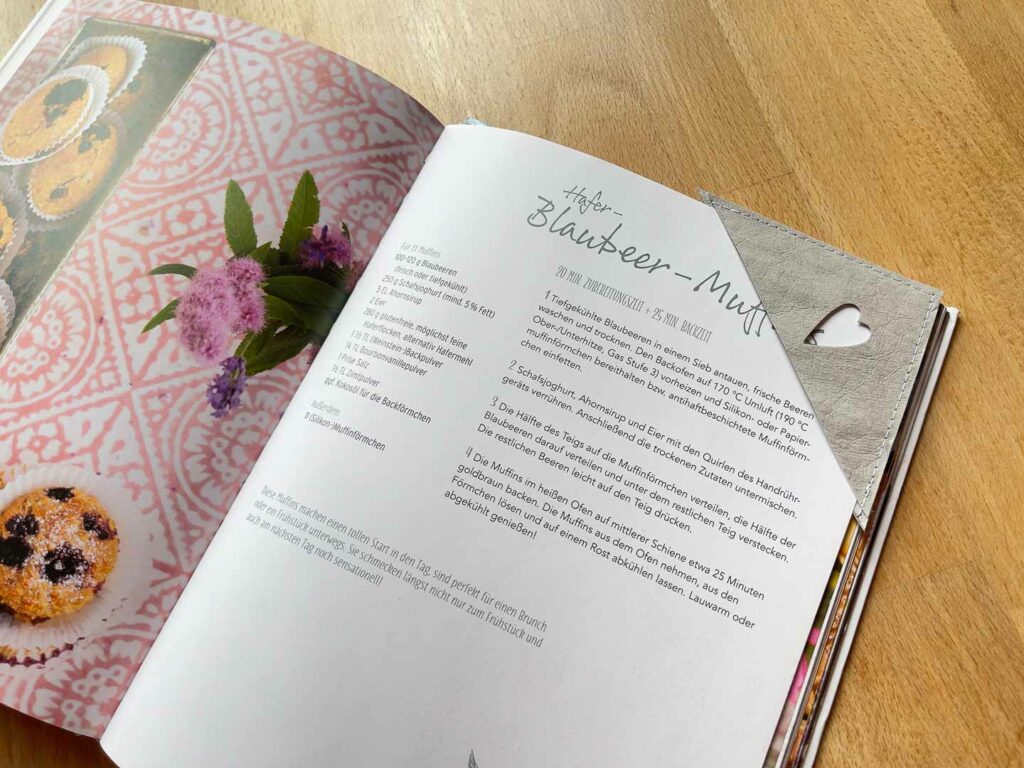 Hafer-
Blaubeer-Muff
20 MIN. ZUBEREITUNGSZEIT + 25 MIN. BACKZEIT
Für 11 Muffins
100–120 g Blaubeeren
(frisch oder tiefgekühlt)
250 g Schafsjoghurt (mind. 5 % Fett)
5 EL Ahornsirup
2 Eier
280 g glutenfreie, möglichst feine
Haferflocken, alternativ Hafermehl
1 ½ TL (Weinstein-)Backpulver
¼ TL Bourbonvanillepulver
1 Prise Salz
½ TL Zimtpulver
ggf. Kokosöl für die Backförmchen
Außerdem
11 (Silikon-)Muffinförmchen
Diese Muffins machen einen tollen Start in den Tag, sind perfekt für einen Brunch
oder ein Frühstück unterwegs. Sie schmecken längst nicht nur zum Frühstück und
auch am nächsten Tag noch sensationell!
1 Tiefgekühlte Blaubeeren in einem Sieb antauen, frische Beeren
waschen und trocknen. Den Backofen auf 170 °C Umluft (190 °C
Ober-/Unterhitze, Gas Stufe 3) vorheizen und Silikon- oder Papier-
muffinförmchen bereithalten bzw. antihaftbeschichtete Muffinförm-
chen einfetten.
2 Schafsjoghurt, Ahornsirup und Eier mit den Quirlen des Handrühr-
geräts verrühren. Anschließend die trockenen Zutaten untermischen.
3 Die Hälfte des Teigs auf die Muffinförmchen verteilen, die Hälfte der
Blaubeeren darauf verteilen und unter dem restlichen Teig verstecken.
Die restlichen Beeren leicht auf den Teig drücken.
4 Die Muffins im heißen Ofen auf mittlerer Schiene etwa 25 Minuten
goldbraun backen. Die Muffins aus dem Ofen nehmen, aus den
Förmchen lösen und auf einem Rost abkühlen lassen. Lauwarm oder
abgekühlt genießen!